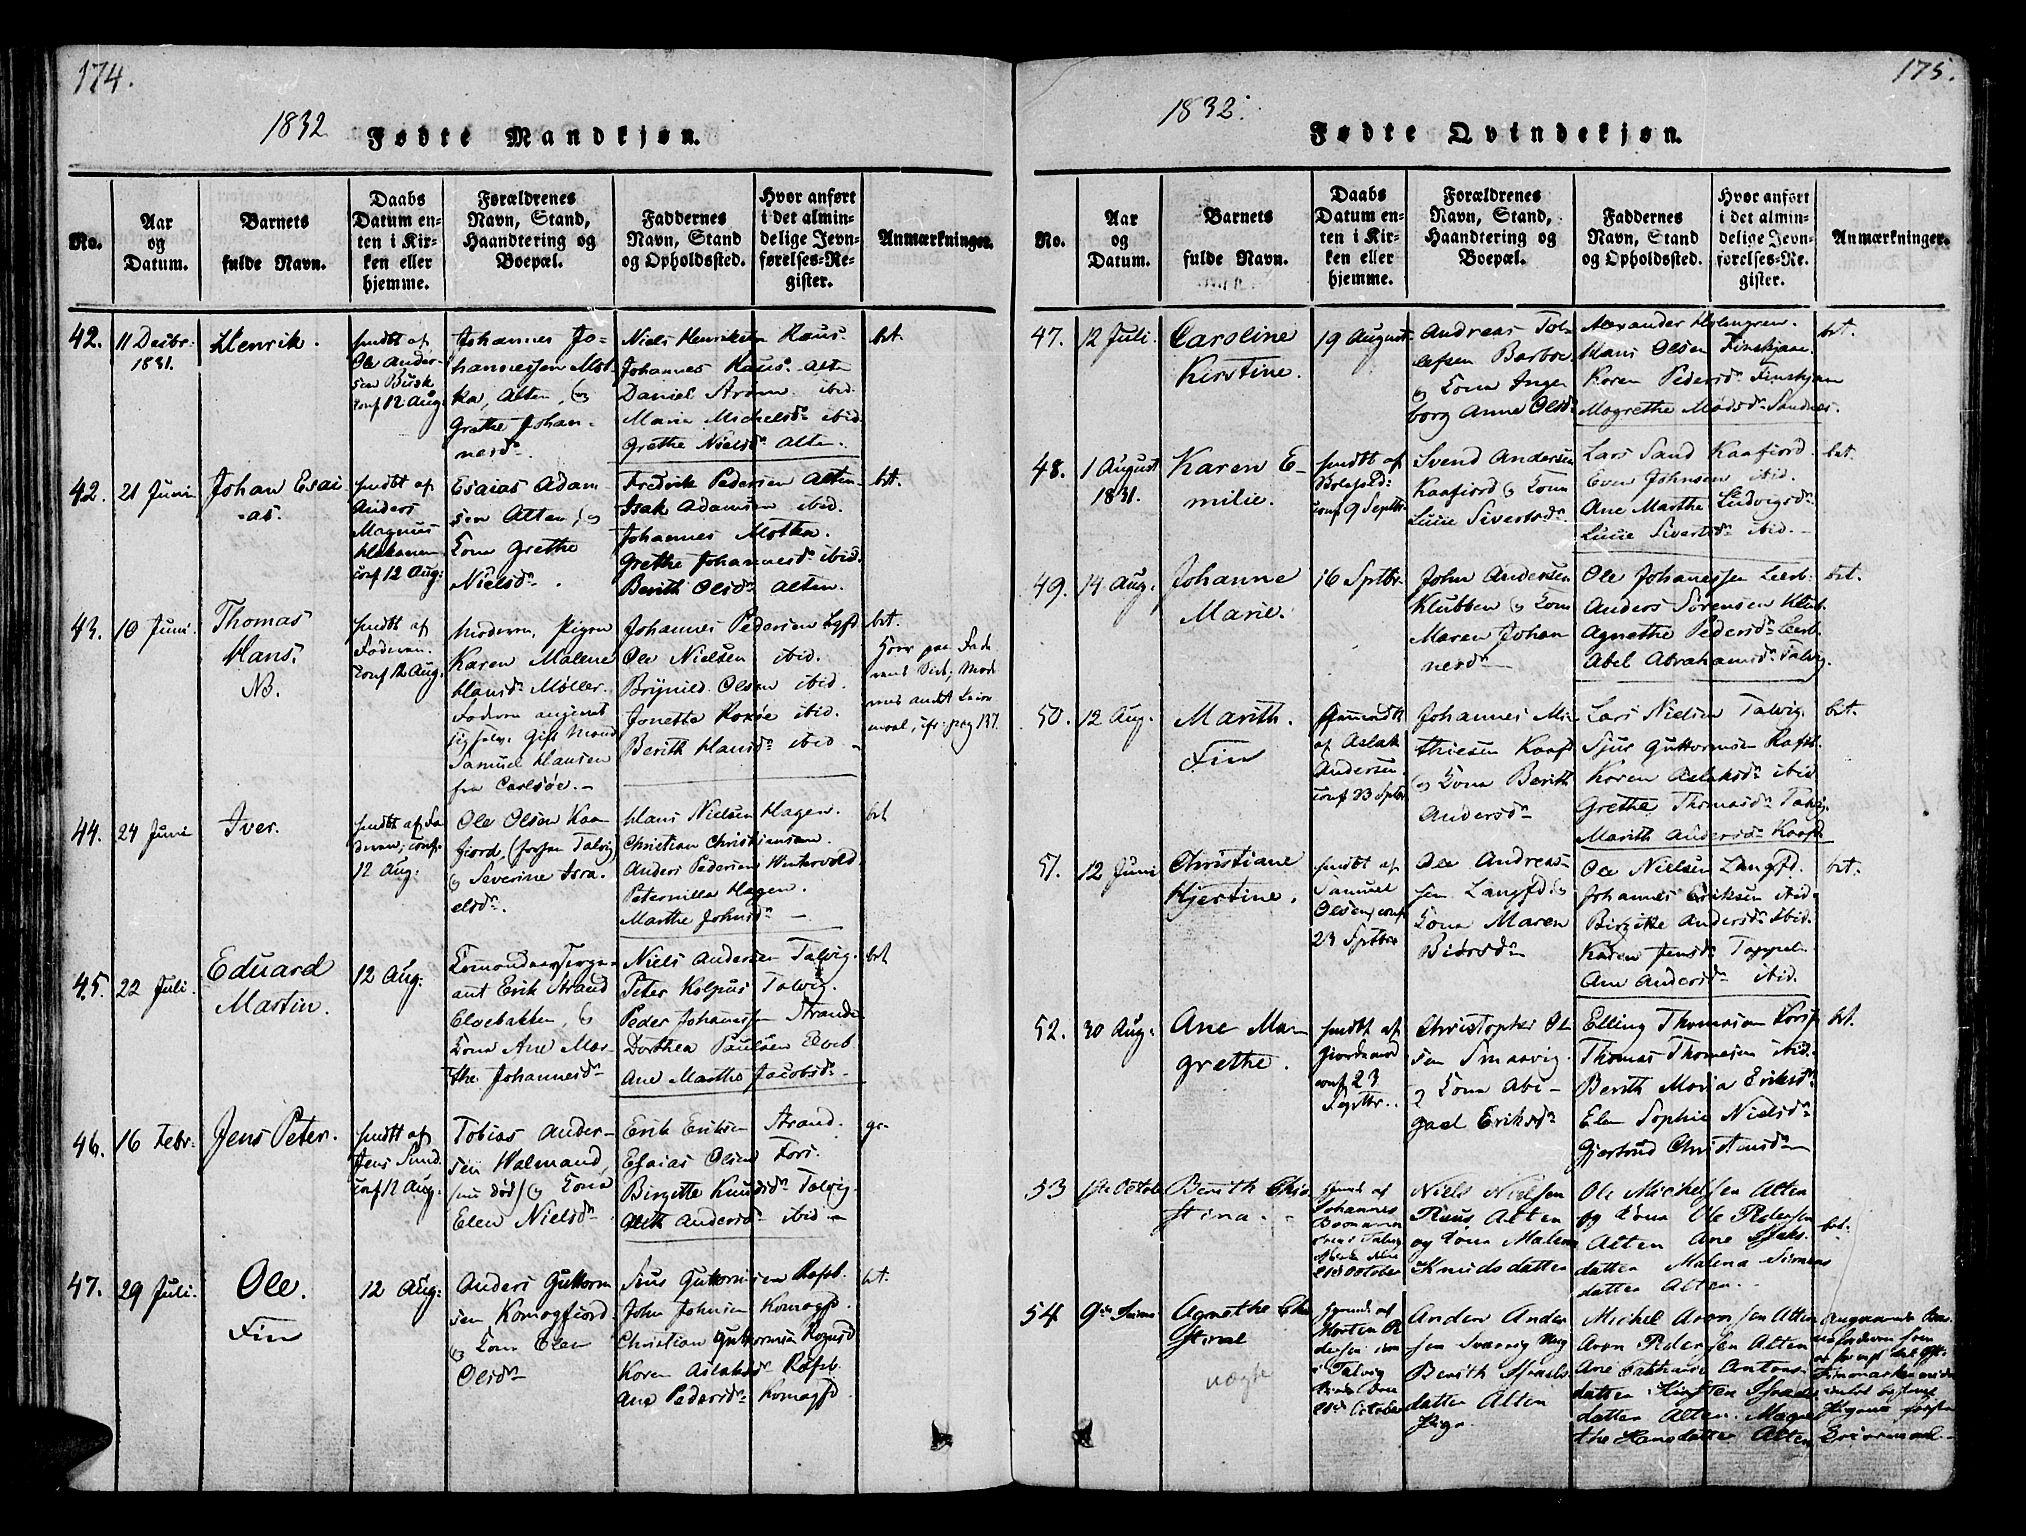 174.
1832
Fødte Mandkjøn.
No.
Aar
og
Datum.
Barnets
fulde Navn.
Daabs
Datum en-
ten i Kir-
ken eller
hjemme.
Forældrenes
Navn, Stand,
Haandtering og
Boepæl.
Faddernes
Navn, Stand
og Opholdssted.
Hvor anført
i det almin-
delige Jevn-
førelses-Re-
gister.
Anmærkninger.
42.
11 Decbr:
1831.
Henrik.
hmdt af
Ole Ander-
sen Busk
conf 12 Aug:
Johannes Jo-
hannessen Mot-
ka, Alten,
Grethe Johan-
nesd.
Niels Henriksen Raus.
Johannes Raus. Alten
Daniel Strøm. ibid.
Marie Michelsd. ibid
Grethe Nielsd. Alten.
bt.
42.
21 Juni
Johan Esai
-as.
hmdt af
Anders
Magnus
conf 12 Aug:
Esaias Adam-
sen Alten,
Kona Grethe
Nielsd.
Fredrik Pedersen Alten
Isak Adamsen ibid.
Johannes Motka.
Grethe Johannesd. ibid.
Berith Olsd. Alten.
bt.
43.
10 Juni.
Thomas
Hans.
NB.
hmdt af
Faderen.
conf 12 Aug.
Moderen, Pigen
Karen Malene
Hansd. Møller.
Faderen angivet
sig selv. Gift Mand
Samuel Hansen
fra Carlsøe.
Johannes Pedersen
Ole Nielsen ibid.
Brynild Olsen ibid.
Jonetta ibid.
Berith Hansd. ibid
bt.
Hoer paa Fade
rens Side, Mod
rens andet Leier
maal, pag 137.
44.
24 Juni
Iver.
hmdt af Fa
deren, conf.
12 Aug:
Ole Olsen Kaa
fjord, Talvig
Severine Isra-
elsd.
Hans Nielsen Hagen.
Christian Christiansen
Anders Pedersen Wintervold.
Peternilla Hagen.
Marthe Johnsd.
bt
45.
22 Juli.
Eduard
Martin.
12 Aug:
ant Erik Strand
Elvebakken,
Kona Ane Mar-
the Johannesd.
Niels Andersen Talvig.
Peter Kolpus Talvig.
Peder Johannessen Strand
Dorthea Paulsen Elveb
Ane Marthe Jacobsd.
bt
46.
16 Febr:
Jens Peter.
hmdt af
Jens Sund.
conf 12 Aug.
Tobias Ander-
sen Walmand,
(nu død) Kona
Elen Nielsd.
Erik Eriksen Strand.
Esaias Olsen Fors.
Birgette Knudsd. Talvig.
Andersd. ibid
47.
29 Juli.
Ole.
Fin
12 Aug:
Anders Guttorm
sen Komagfjord
Kona Elen
Olsd.
Siur Guttormsen Rafsb.
John Johnsen Komagf.
Christian Guttormsen
Karen Aslaksd. Rafsb.
Ane Pedersd. Komagfd
bt.
175.
1832.
Fødte Qvindekjøn.
No.
Aar
og
Datum.
Barnets
fulde Navn.
Daabs
Datum en-
ten i Kir-
ken eller
hjemme.
Forældrenes
Navn, Stand,
Haandtering og
Boepæl.
Faddernes
Navn, Stand
og Opholdssted.
Hvor anført
i det almin-
delige Jevn-
førelses-Re-
gister.
Anmærkninger.
47.
12 Juli.
Caroline
Kirstine.
19 August.
Andreas Tol-
lefsen
Kona Inge
borg Anne Olsd.
Alexander Holmgren.
Hans Olsen
Karen Pedersd.
Magrethe
bt.
48.
1 August
1831.
Karen E-
milie.
hmdt af
conf 9 Septbr
Svend Andersen
Kaafiord Kona
Lucie Sivertsd.
Lars Sand Kaafiord
Even Johnsen ibid.
Ane Marthe Ludvigsd.
Lucie Sivertsd. ibid.
bt.
49.
14 Aug:
Johanne
Marie.
16 Sptbr.
John Andersen
Klubben Kona
Maren Johan
nesd
Ole Johannessen Leerb.
Anders Sørensen Klub.
Agnethe Pedersd. Leerb.
Abel Abrahamsd. Talvig.
bt.
50.
12 Aug.
Marith.
Fin
af Aslak
Andersen.
conf 23 Sptbr
Johannes Ma
thiesen Kaafd
Kona Berith
Andersd.
Lars Nielsen Talvig.
Sjur Guttormsen Rafsb.
Karen Aslaksd. ibid
Grethe Thomasd. Talvig.
Marith Andersd. Kaafd
bt.
51.
12 Juni
Christiane
Kjerstine.
hmdt af
Samuel
Olsen, conf
23 Sptbr
Ole Andreas-
sen Langfd
Kona Maren
Biørsd
Ole Nielsen Langfd.
Johannes Eriksen ibid.
Birgitte Andersd. ibid.
Karen Jensd. Tappel.
Ane Andersd. ibid.
bt.
52.
30 Aug:
Ane Ma-
grethe.
hmdt af
conf 23
Septbr.
Christopher Ol
sen Smaavig.
Kona Abi-
gael Eriksd.
Elling Thomesen
Thomas Thomesen ibid.
Berith Maria Eriksd.
Elen Sophie Nielsd.
Gjertrud Christensd
bt.
53
Octobr
Berith Chris
tina.
af
Johannes
Talvig
21de October
Niels Nielsen
Ruus Alten
og Kona Malena
Knudsdatter
Ole Michelsen Alten
og Kona Ole Pedersen
Alten Ane Isaks
datter Malena Simons
datter Alten.
bt.
54
9de
Agnethe Chri
stine
uægte
af
Morten Pe
dersen
i Talvig
21de October
Anders Ander
sen
Berith Israels
datter Alten
Pige
Michel Aron sen Alten
Aron Pedersen Alten
Ane Cathrine Antons-
datter Kirsten Israels
datter Alten. Magre
the Hansdatter Alten
Angivende Bar-
nefaderen som
Finmarken
Pigens første
Leiermaal